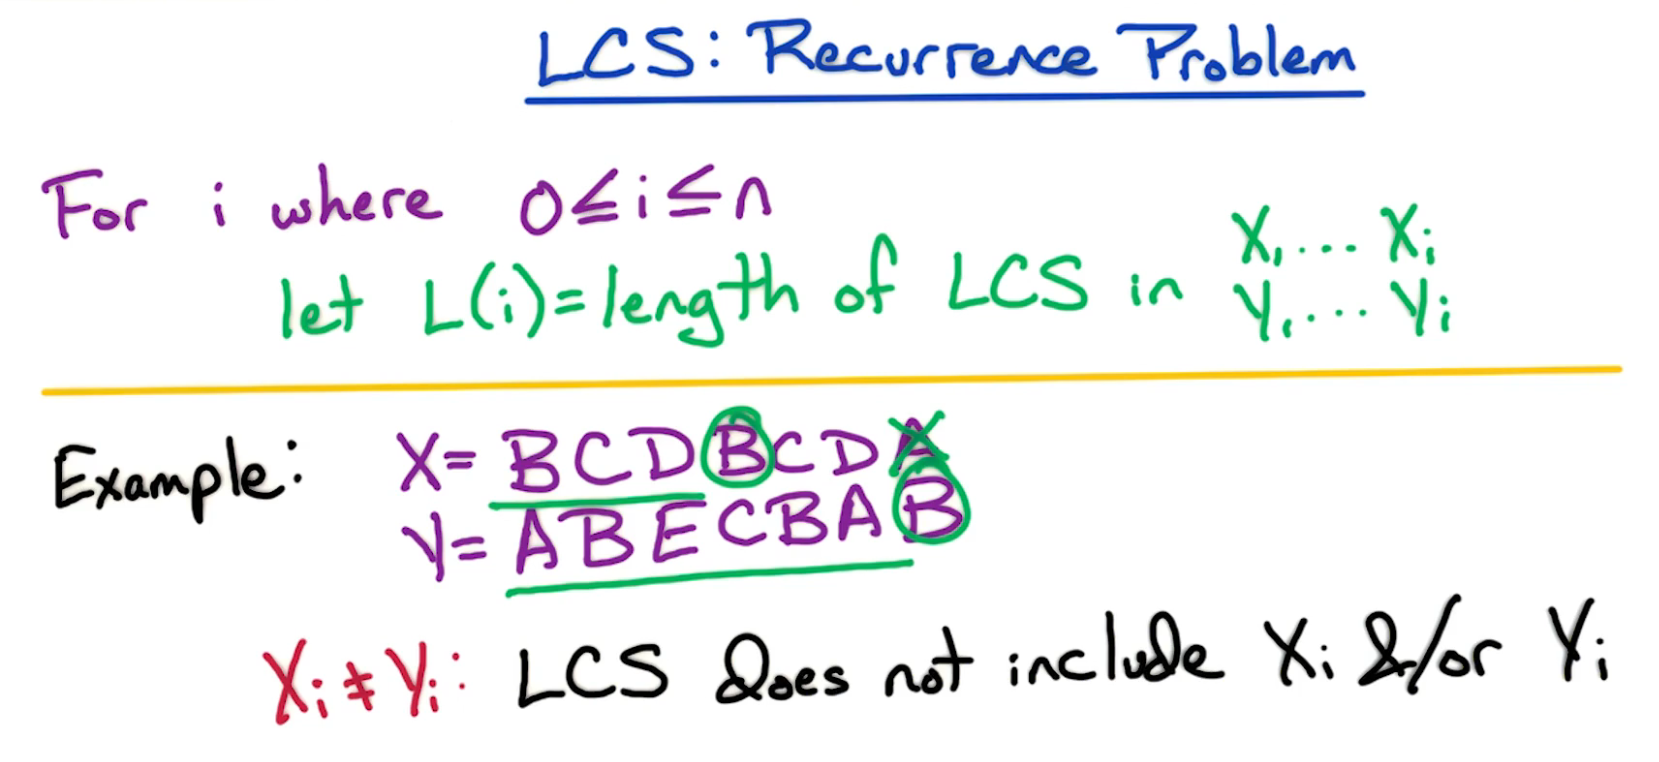 LCS: Recurrence Problem
For i where 0≤i≤n
let L(i)=length of LCS in X₁,... Xᵢ
Y₁,... Yᵢ
Example: X= BCDBCDA
Y= ABECBAB
Xᵢ≠Yᵢ: LCS does not include Xᵢ &/or Yᵢ